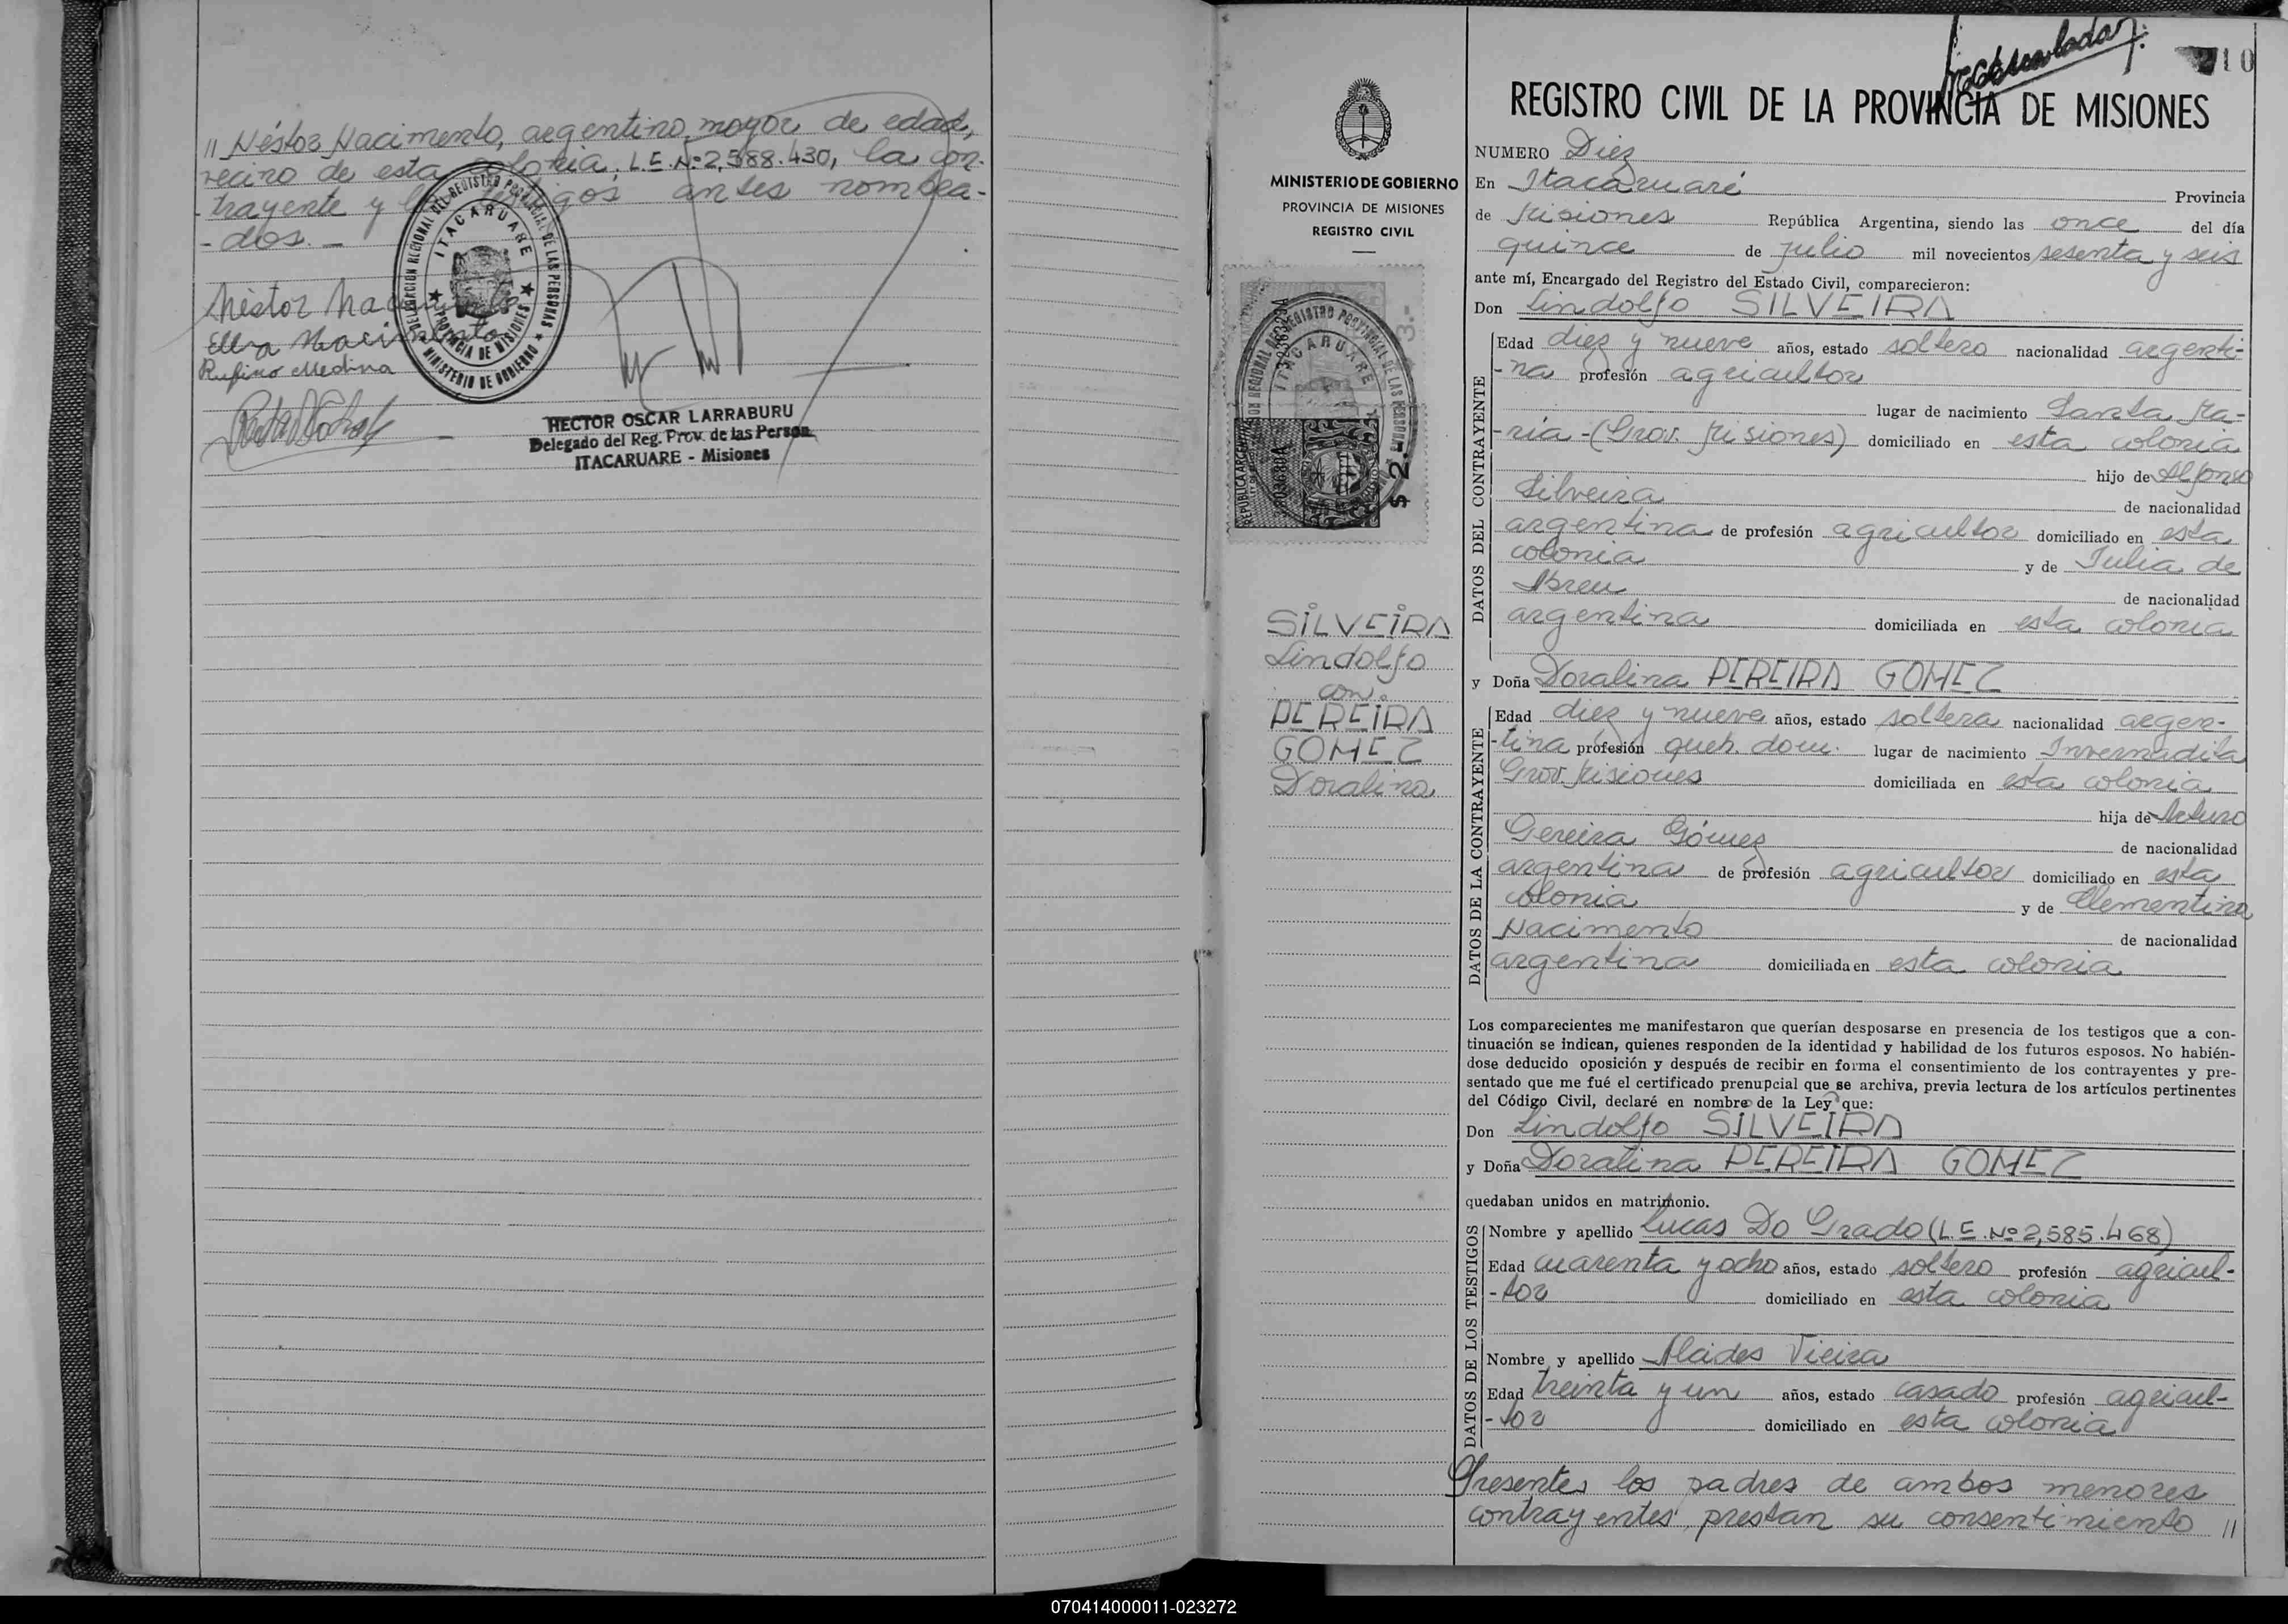 // Néstor Nacimento, argentino, mayor de edad,
vecino de esta colonia, L.E.Nº2,588.430, la con-
trayente y los testigos antes nombra-
-dos.-
Néstor Nacimento
Elva Nacimento
Rufino Medina
DELEGACION REGIONAL DEL REGISTRO PROVINCIAL DE LAS PERSONAS
ITACARUARE
PROVINCIA DE MISIONES
MINISTERIO DE GOBIERNO
HECTOR OSCAR LARRABURU
Delegado del Reg. Prov. de las Person.
ITACARUARE - Misiones
MINISTERIO DE GOBIERNO
PROVINCIA DE MISIONES
REGISTRO CIVIL
ITACARUARE
$ 2.-
SILVEIRA
Lindolfo
con
PEREIRA
GOMEZ
Doralina
10
REGISTRO CIVIL DE LA PROVINCIA DE MISIONES
NUMERO Diez
En Itacaruaré Provincia
de Misiones República Argentina, siendo las once del día
quince de julio mil novecientos sesenta y seis
ante mí, Encargado del Registro del Estado Civil, comparecieron:
Don Lindolfo SILVEIRA
DATOS DEL CONTRAYENTE
Edad diez y nueve años, estado soltero nacionalidad argenti-
-na profesión agricultor
lugar de nacimiento Santa Ma-
-ría-(Prov. Misiones) domiciliado en esta colonia
hijo de Alfonso
Silveira de nacionalidad
argentina de profesión agricultor domiciliado en esta
colonia y de Julia de
Abreu de nacionalidad
argentina domiciliada en esta colonia
y Doña Doralina PEREIRA GOMEZ
DATOS DE LA CONTRAYENTE
Edad diez y nueve años, estado soltera nacionalidad argen-
-tina profesión queh. dom. lugar de nacimiento Invernadita
Prov. Misiones domiciliada en esta colonia
hija de Arturo
Pereira Gómez de nacionalidad
argentina de profesión agricultor domiciliado en esta
colonia y de Clementina
Nacimento de nacionalidad
argentina domiciliada en esta colonia
Los comparecientes me manifestaron que querían desposarse en presencia de los testigos que a con-
tinuación se indican, quienes responden de la identidad y habilidad de los futuros esposos. No habién-
dose deducido oposición y después de recibir en forma el consentimiento de los contrayentes y pre-
sentado que me fué el certificado prenupcial que se archiva, previa lectura de los artículos pertinentes
del Código Civil, declaré en nombre de la Ley que:
Don Lindolfo SILVEIRA
y Doña Doralina PEREIRA GOMEZ
quedaban unidos en matrimonio.
DATOS DE LOS TESTIGOS
Nombre y apellido Lucas Do Prado (L.E.Nº2,585.468)
Edad cuarenta y ocho años, estado soltero profesión agricul-
-tor domiciliado en esta colonia
Nombre y apellido Alcides Vieira
Edad treinta y un años, estado casado profesión agricul-
-tor domiciliado en esta colonia
Presentes los padres de ambos menores
contrayentes prestan su consentimiento //
070414000011-023272